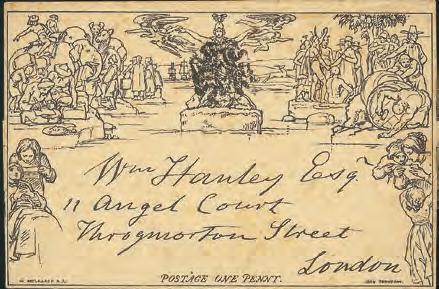 Wm Hanley Esqr
11 Angel Court
Throgmorton Street
London
POSTAGE ONE PENNY.
W. MULREADY R.A.
JOHN THOMPSON.